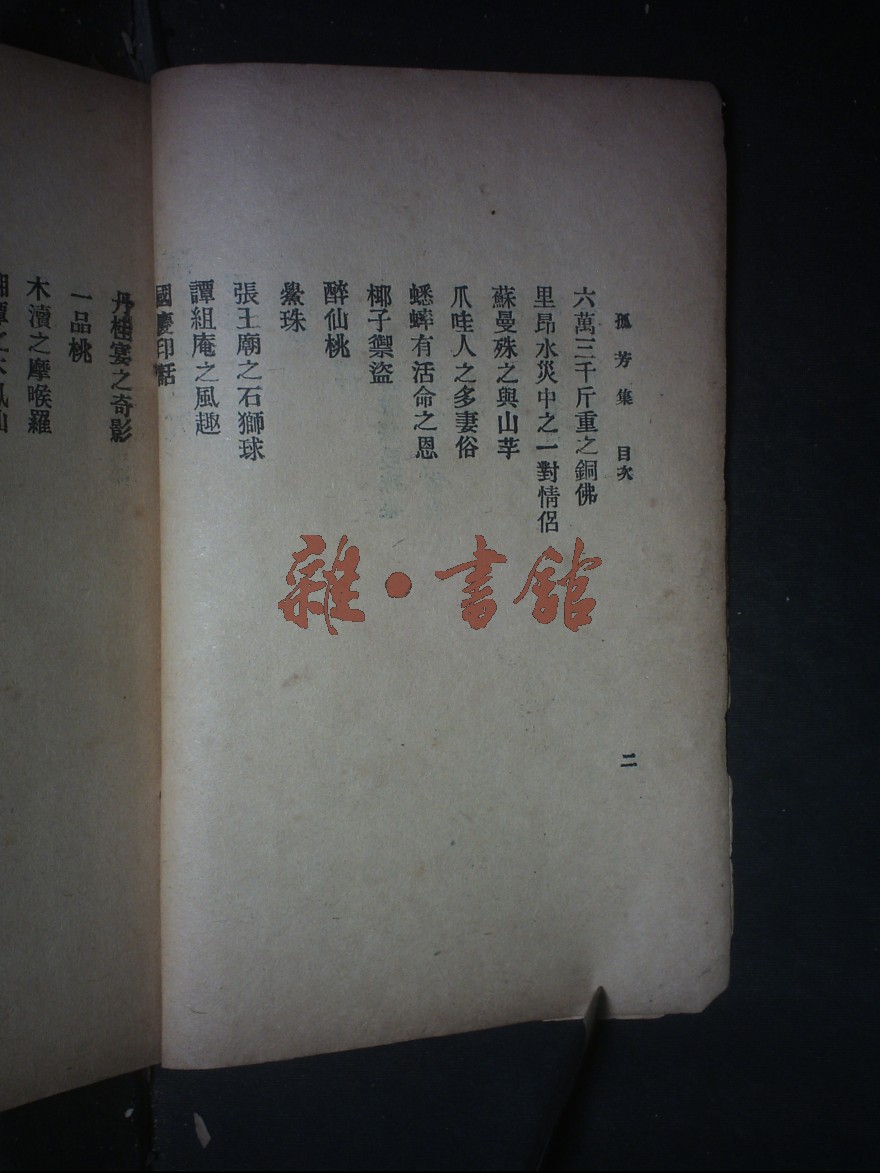 孤芳集 目次
六萬三千斤重之銅佛
里昂水災中之一對情侶
蘇曼殊之與山芋
爪哇人之多妻俗
蟋蟀有活命之恩
椰子禦盜
醉仙桃
鱟珠
張王廟之石獅球
譚組庵之風趣
國慶印話
二
丹桂宴之奇影
一品桃
木瀆之摩睺羅
雜·書館